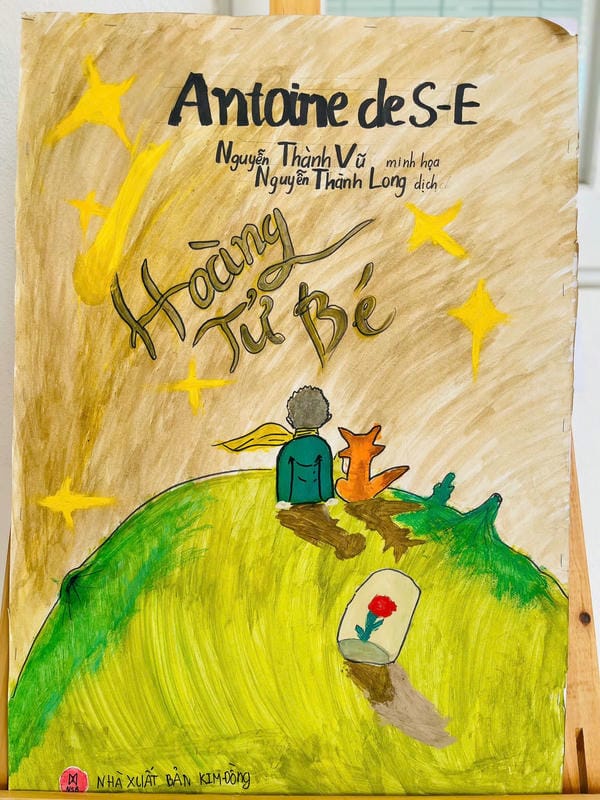 Antoine de S-E
Nguyễn Thành Vũ minh họa
Nguyễn Thành Long dịch
Hoàng
Tử Bé
NHÀ XUẤT BẢN KIM ĐỒNG